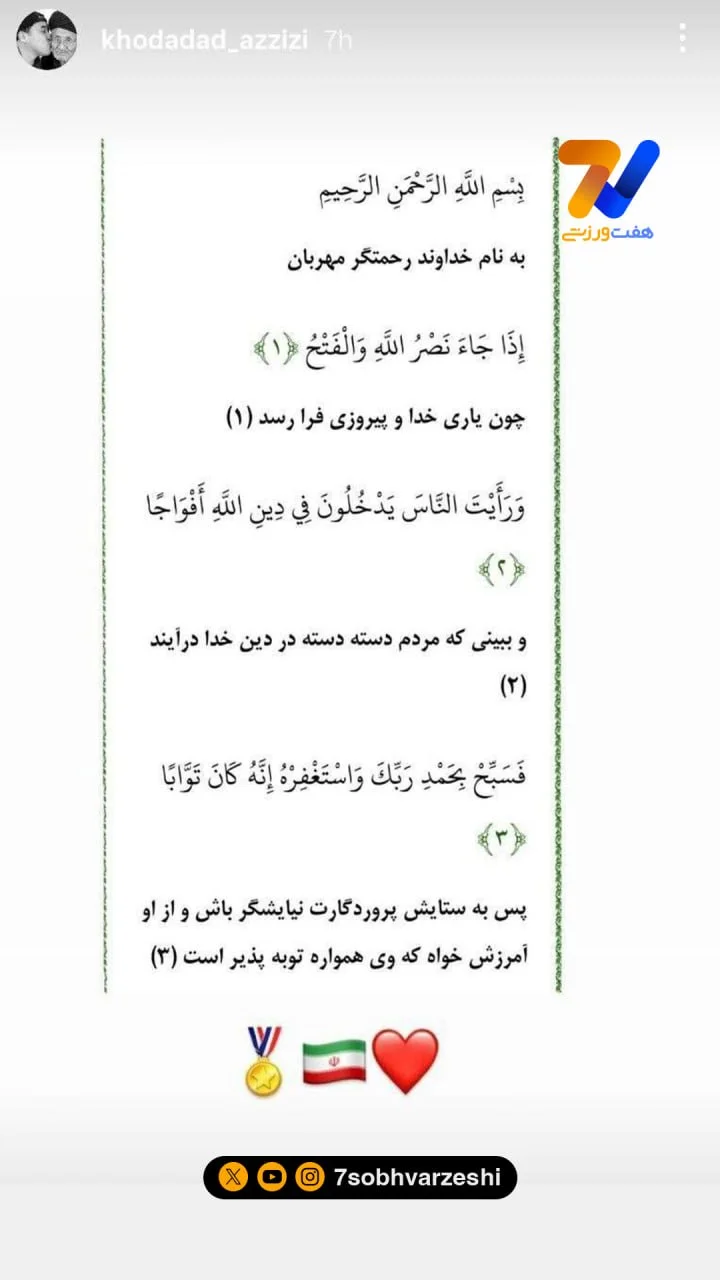 khodadad_azzizi 7h
هفت ورزشی
بِسْمِ اللَّهِ الرَّحْمَنِ الرَّحِيمِ
به نام خداوند رحمتگر مهربان
إِذَا جَاءَ نَصْرُ اللَّهِ وَالْفَتْحُ ﴿١﴾
چون یاری خدا و پیروزی فرا رسد (۱)
وَرَأَيْتَ النَّاسَ يَدْخُلُونَ فِي دِينِ اللَّهِ أَفْوَاجًا
﴿٢﴾
و ببینی که مردم دسته دسته در دین خدا درآیند
(۲)
فَسَبِّحْ بِحَمْدِ رَبِّكَ وَاسْتَغْفِرْهُ إِنَّهُ كَانَ تَوَّابًا
﴿٣﴾
پس به ستایش پروردگارت نیایشگر باش و از او
آمرزش خواه که وی همواره توبه پذیر است (۳)
7sobhvarzeshi